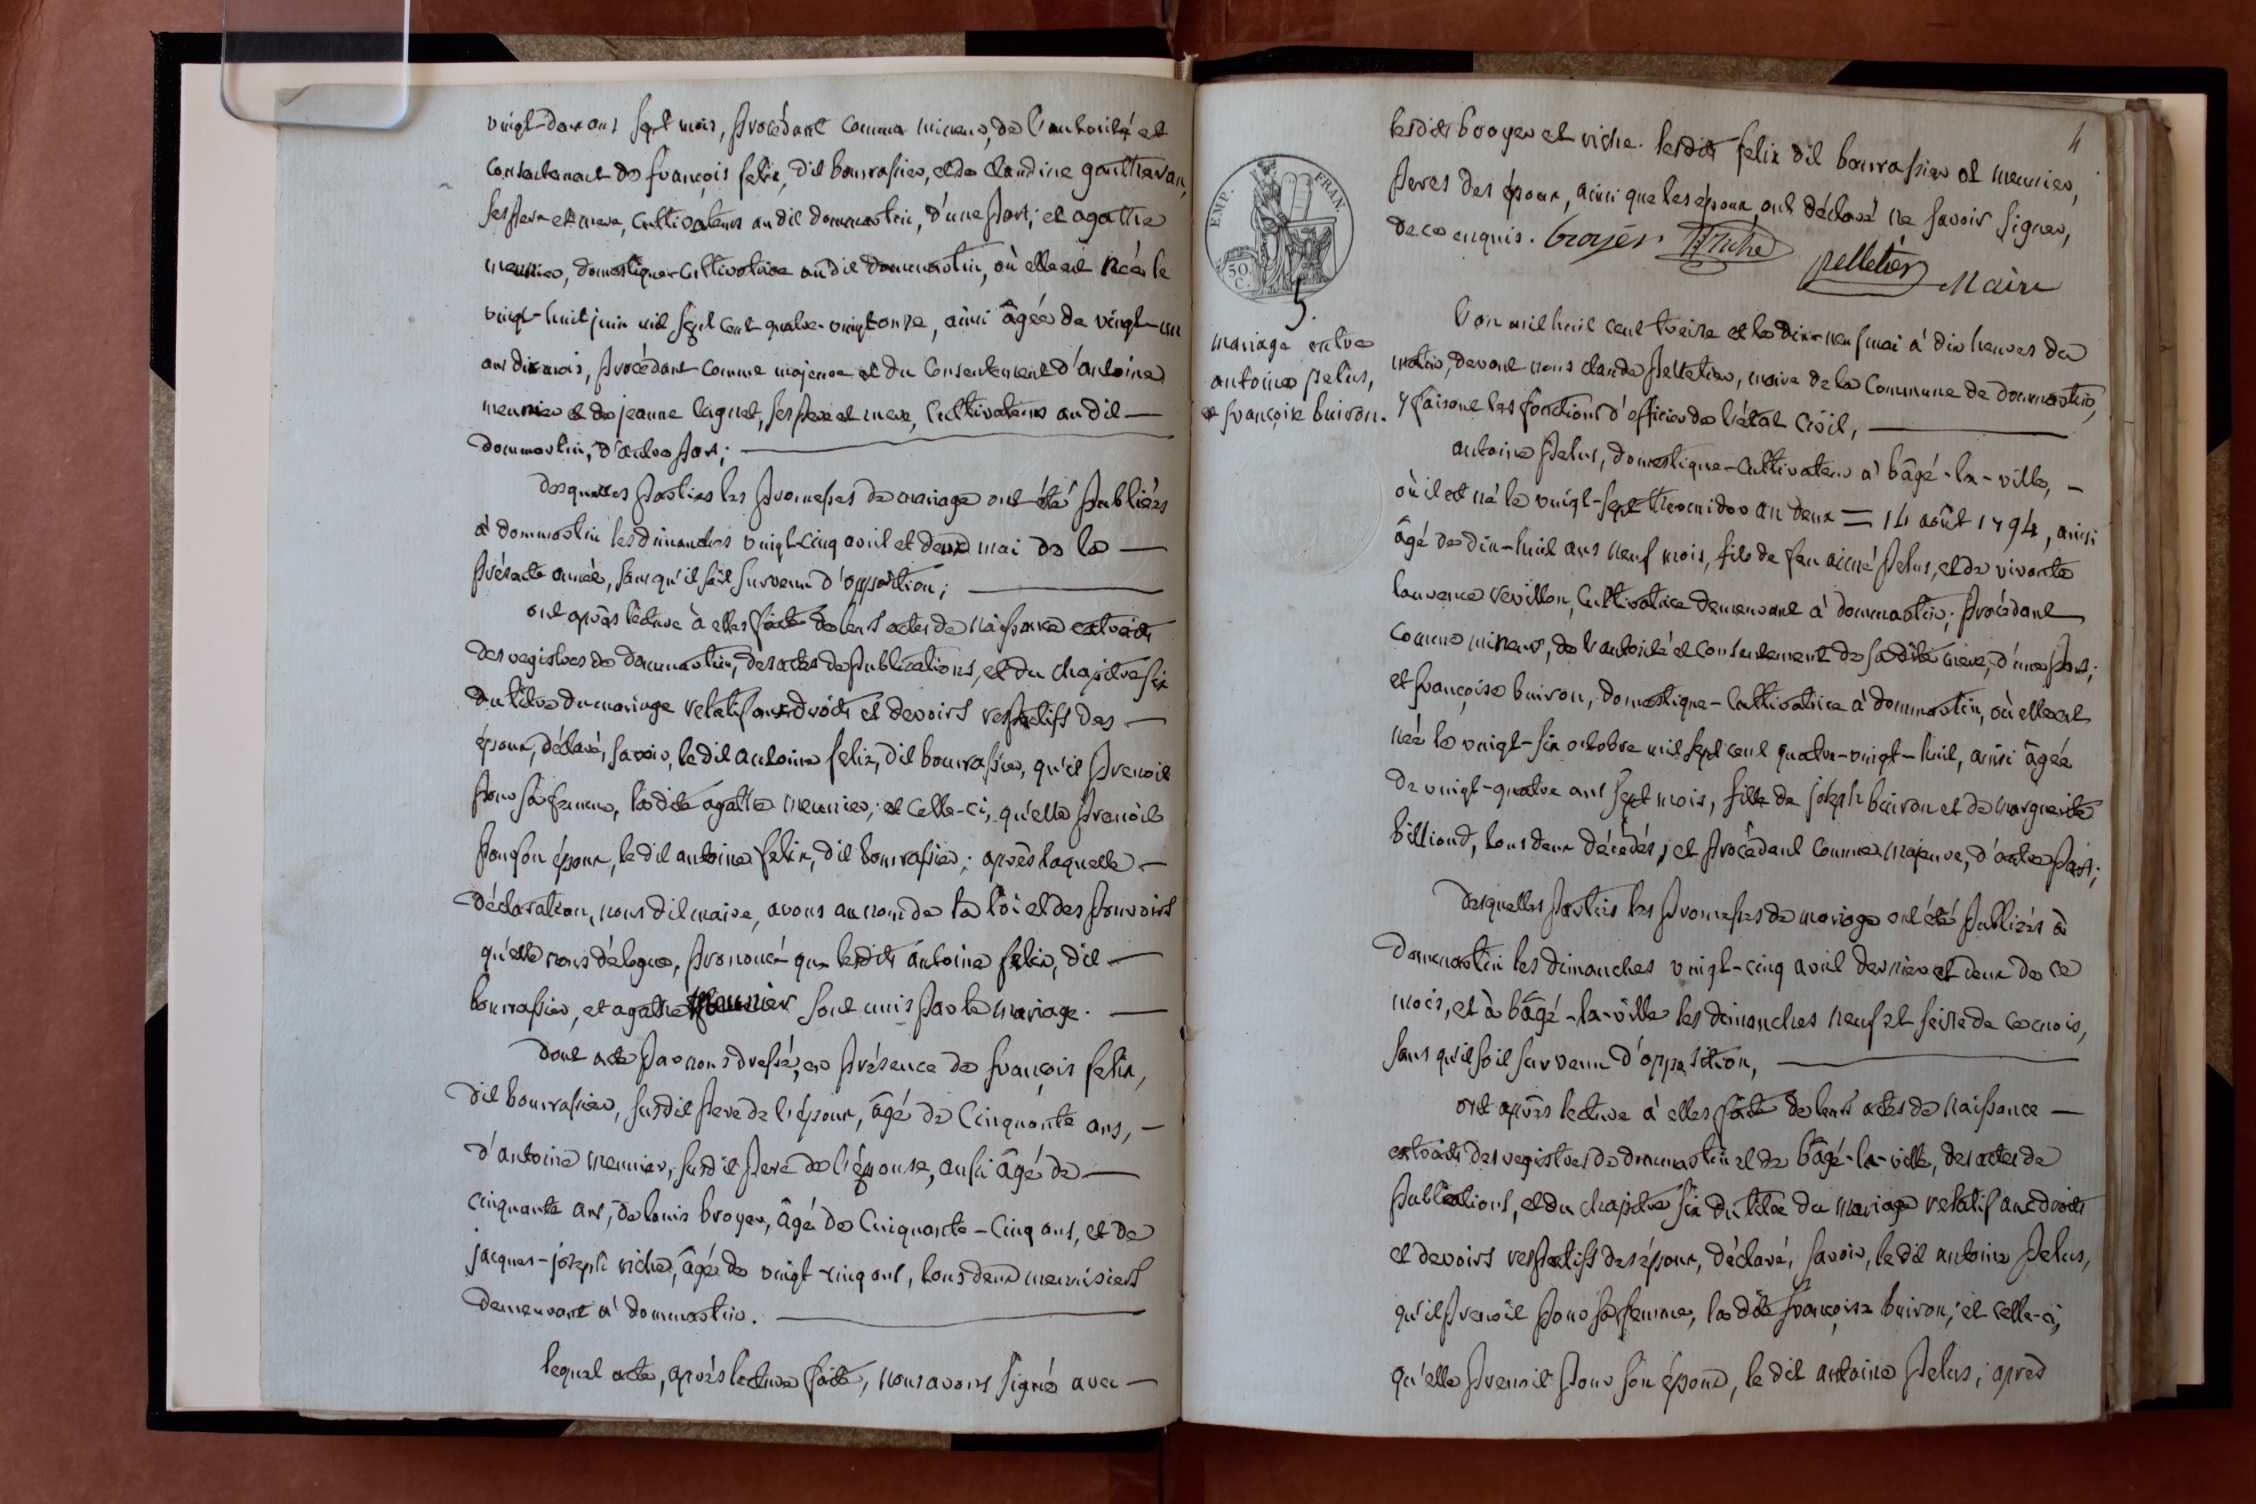 vingt-deux ans sept mois, procédant comme mineur, de l'autorité et
consentement de françois felix, dit bourrassier, et de claudine gautheran,
ses pere et mere, cultivateurs au dit dommartin, d'une part; et agathe
meunier, domestique-cultivatrice au dit dommartin, où elle est née le
vingt-huit juin mil sept cent quatre-vingt onze, ainsi âgée de vingt-un
ans dix mois, procédant comme majeure et du consentement d'antoine
meunier et de jeanne lagnet, ses pere et mere, cultivateurs au dit
dommartin, d'autre part;
desquelles parties les promesses de mariage ont été publiées
à dommartin les dimanches vingt-cinq avril et deux mai de la
présente année, sans qu'il soit survenu d'opposition;
ont après lecture à elles faite de leurs actes de naissance extraits
des registres de dommartin, des actes de publications, et du chapitre six
du titre du mariage relatif aux droits et devoirs respectifs des
époux, déclaré, savoir, le dit antoine felix, dit bourrassier, qu'il prenoit
pour sa femme, la dite agathe meunier; et celle-ci, qu'elle prenoit
pour son époux, le dit antoine felix, dit bourrassier; après laquelle
déclaration, nous dit maire, avons au nom de la loi et des pouvoirs
qu'elle nous délegue, prononcé que lesdits antoine felix, dit
bourrassier, et agathe meunier sont unis par le mariage.
dont acte par nous dressé, en présence de françois felix,
dit bourrassier, susdit pere de l'époux, âgé de cinquante ans,
d'antoine meunier, susdit pere de l'épouse, aussi âgé de
cinquante ans, de louis broyer, âgé de cinquante-cinq ans, et de
jacques-joseph riche, âgé de vingt-cinq ans, tous deux menuisiers
demeurant à dommartin.
lequel acte, après lecture faite, nous avons signé avec
4
lesdits broyer et riche. lesdits felix dit bourrassier et meunier,
peres des époux, ainsi que les époux, ont déclaré ne savoir signer,
de ce enquis. broyer riche
pelletier Maire
EMP. FRAN.
50. C.
5.
mariage entre
antoine pelus,
et françoise buiron.
L'an mil huit cent treize et le dix-neuf mai à dix heures du
matin, devant nous claude pelletier, maire de la commune de dommartin,
y faisant les fonctions d'officier de l'état civil,
antoine pelus, domestique-cultivateur à bâgé-la-ville,
où il est né le vingt-sept thermidor an deux = 14 août 1794, ainsi
âgé de dix-huit ans neuf mois, fils de feu aimé pelus, et de vivante
laurence revillon, cultivatrice demeurant à dommartin; procédant
comme mineur, de l'autorité et consentement de sa dite mere, d'une part;
et françoise buiron, domestique-cultivatrice à dommartin, où elle est
née le vingt-six octobre mil sept cent quatre-vingt-huit, ainsi âgée
de vingt-quatre ans sept mois, fille de joseph buiron et de marguerite
billioud, tous deux décédés; et procédant comme majeure, d'autre part;
desquelles parties les promesses de mariage ont été publiées à
dommartin les dimanches vingt-cinq avril dernier et deux de ce
mois, et à bâgé-la-ville les dimanches neuf et seize de ce mois,
sans qu'il soit survenu d'opposition,
ont après lecture à elles faite de leurs actes de naissance
extraits des registres de dommartin et de bâgé-la-ville, des actes de
publications, et du chapitre six du titre du mariage relatif aux droits
et devoirs respectifs des époux, déclaré, savoir, le dit antoine pelus,
qu'il prenoit pour sa femme, la dite françoise buiron; et celle-ci,
qu'elle prenoit pour son époux, le dit antoine pelus; après